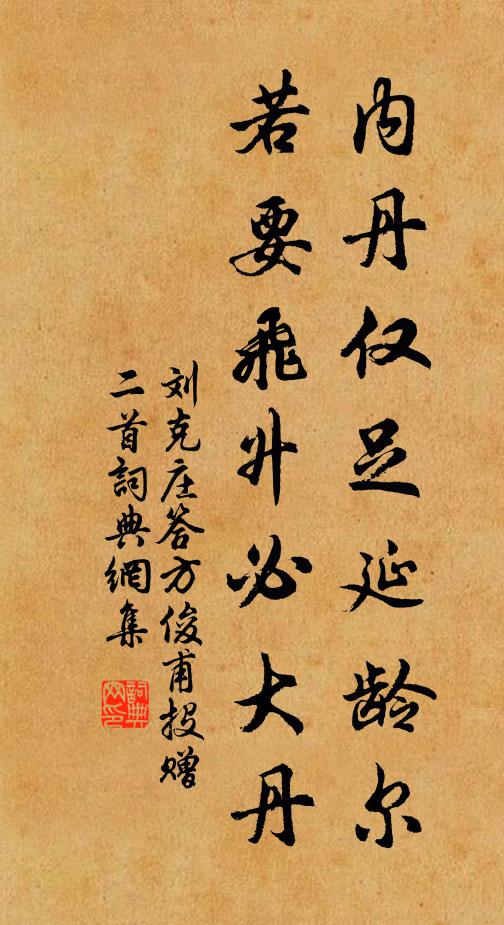 内丹仅足延龄尔
若要飛升必大丹
刘克庄答方俊甫投赠
二首詞典網集
詞典
网印